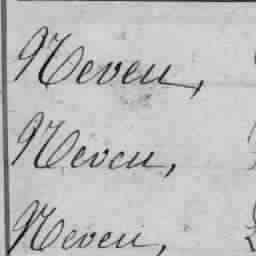 Neveu,
Neveu,
Neveu,